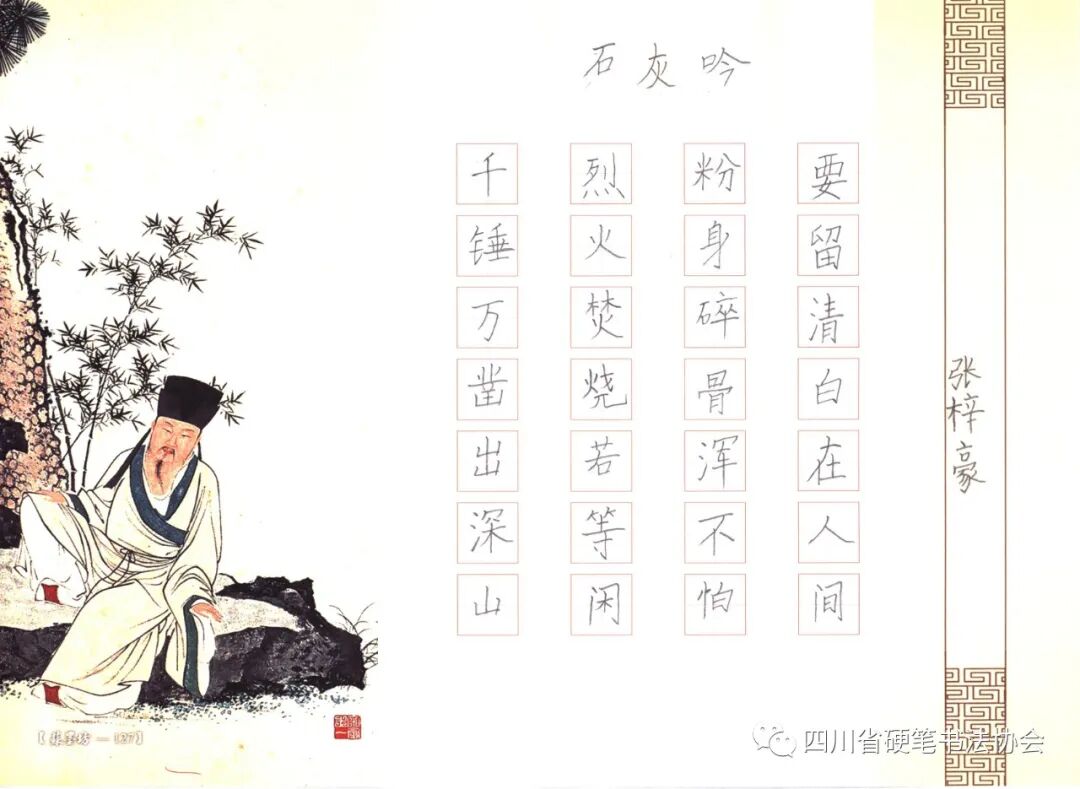 石灰吟
千锤万凿出深山
烈火焚烧若等闲
粉身碎骨浑不怕
要留清白在人间
张梓豪
四川省硬笔书法协会